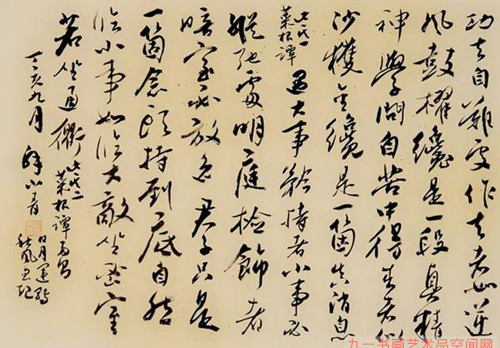 功夫自難處作去者如逆
風鼓櫂纔是一段真精
神學問自苦中得来者似
沙獲金纔是一箇真消息
菜根譚 遇大事矜情者小事必
縱弛處明庭檢飾者
暗室必放逸君子只是
一箇念頭持到底自然
臨小事如臨大敵坐密室
若坐通衢 菜根譚
丁亥九月
日月
九一书画艺术品空间网